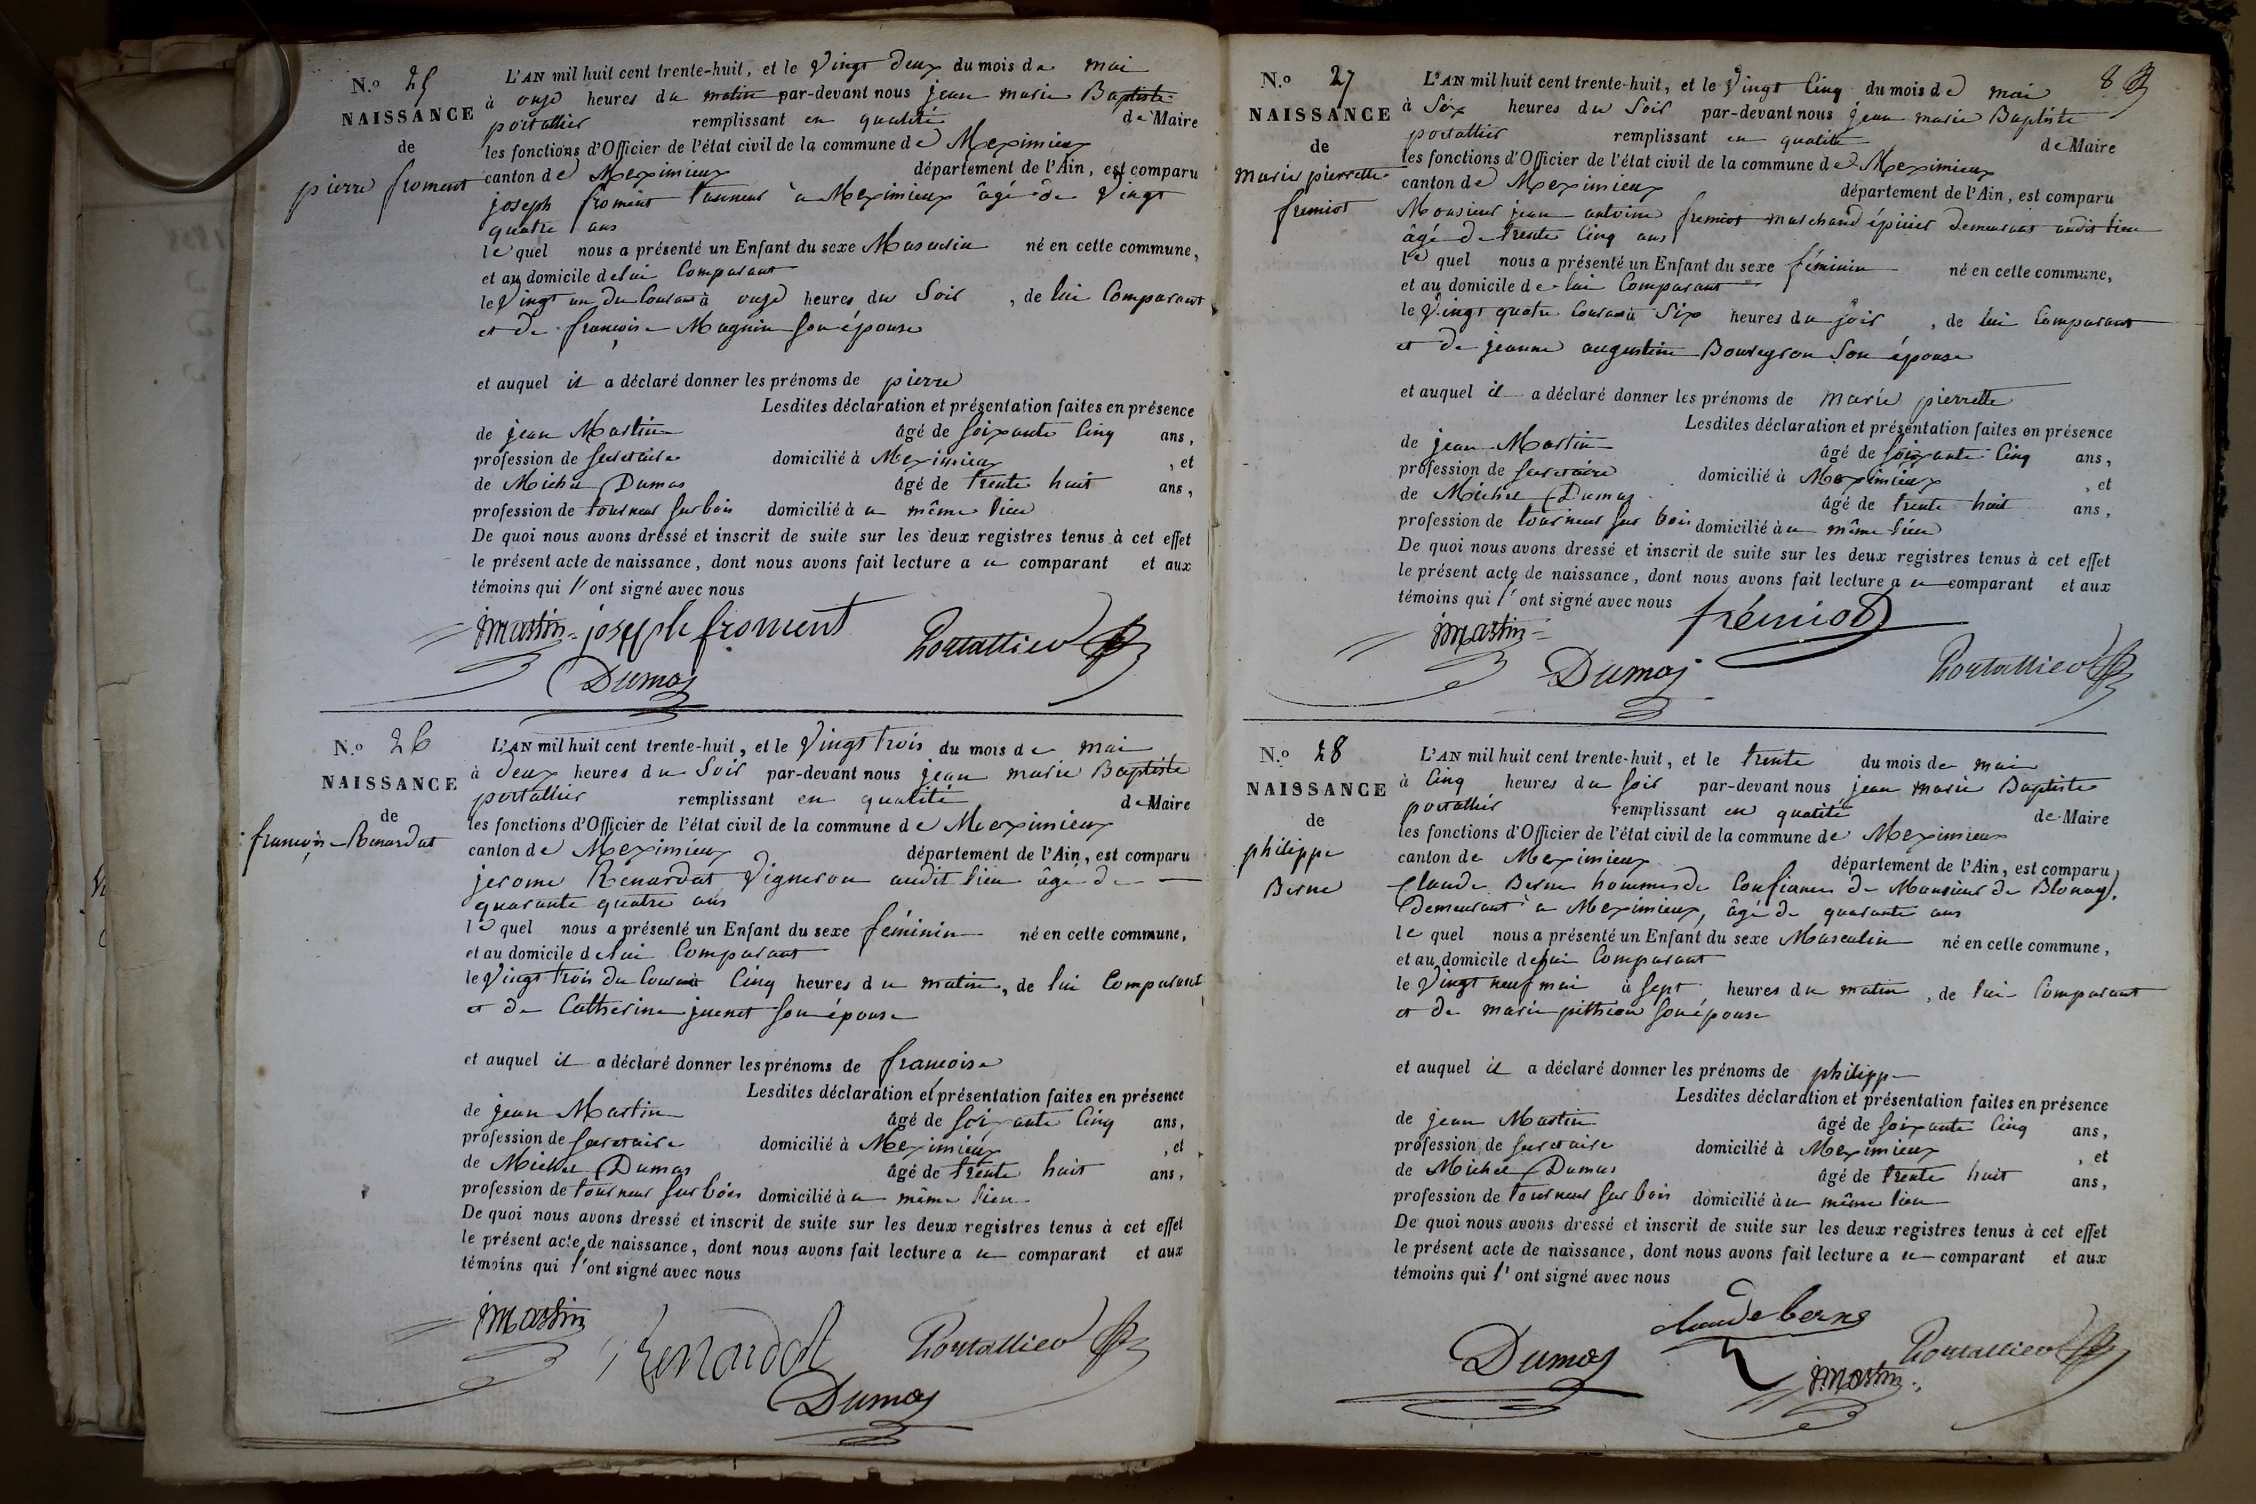 N.o 25
NAISSANCE
de
pierre froment
L'AN mil huit cent trente-huit, et le Vingt deux du mois de mai
à onze heures du matin par-devant nous jean marie Baptiste
portallier remplissant en qualité de Maire
les fonctions d'Officier de l'état civil de la commune de Meximieux
canton de Meximieux département de l'Ain, est comparu
joseph froment tanneur à Meximieux âgé de Vingt
quatre ans
lequel nous a présenté un Enfant du sexe Masculin né en cette commune,
et au domicile de lui Comparant
le Vingt un du Courant à onze heures du Soir, de lui Comparant
et de françoise Magnin son épouse
et auquel il a déclaré donner les prénoms de pierre
Lesdites déclaration et présentation faites en présence
de jean Martin âgé de soixante Cinq ans,
profession de secretaire domicilié à Meximieux, et
de Michel Dumas âgé de trente huit ans,
profession de tourneur sur bois domicilié à u même lieu
De quoi nous avons dressé et inscrit de suite sur les deux registres tenus à cet effet
le présent acte de naissance, dont nous avons fait lecture a u comparant et aux
témoins qui l'ont signé avec nous
jmartin joseph froment Portallier
Dumas
N.o 26
NAISSANCE
de
françoise Renardat
L'AN mil huit cent trente-huit, et le Vingt trois du mois de mai
à deux heures du Soir par-devant nous jean marie Baptiste
portallier remplissant en qualité de Maire
les fonctions d'Officier de l'état civil de la commune de Meximieux
canton de Meximieux département de l'Ain, est comparu
jerome Renardat Vigneron audit lieu âgé de
quarante quatre ans
lequel nous a présenté un Enfant du sexe féminin né en cette commune,
et au domicile de lui Comparant
le Vingt trois du Courant à Cinq heures du matin, de lui Comparant
et de Catherine juenet son épouse
et auquel il a déclaré donner les prénoms de françoise
Lesdites déclaration et présentation faites en présence
de jean Martin âgé de soixante Cinq ans,
profession de secretaire domicilié à Meximieux, et
de Michel Dumas âgé de trente huit ans,
profession de tourneur sur bois domicilié à u même lieu
De quoi nous avons dressé et inscrit de suite sur les deux registres tenus à cet effet
le présent acte de naissance, dont nous avons fait lecture a u comparant et aux
témoins qui l'ont signé avec nous
jmartin Renardat Portallier
Dumas
8
N.o 27
NAISSANCE
de
marie pierrette
fremiot
L'AN mil huit cent trente-huit, et le Vingt Cinq du mois de mai
à Six heures du Soir par-devant nous jean marie Baptiste
portallier remplissant en qualité de Maire
les fonctions d'Officier de l'état civil de la commune de Meximieux
canton de Meximieux département de l'Ain, est comparu
Monsieur jean antoine fremiot marchand épicier demeurant audit lieu
âgé de trente Cinq ans
lequel nous a présenté un Enfant du sexe féminin né en cette commune,
et au domicile de lui Comparant
le Vingt quatre Courant à Six heures du soir, de lui Comparant
et de jeanne augustine Bouveyron Son épouse
et auquel il a déclaré donner les prénoms de marie pierrette
Lesdites déclaration et présentation faites en présence
de jean Martin âgé de soixante Cinq ans,
profession de secretaire domicilié à Meximieux, et
de Michel Dumas âgé de trente huit ans,
profession de tourneur sur bois domicilié à u même lieu
De quoi nous avons dressé et inscrit de suite sur les deux registres tenus à cet effet
le présent acte de naissance, dont nous avons fait lecture a u comparant et aux
témoins qui l'ont signé avec nous
jmartin frémiot
Dumas Portallier
N.o 28
NAISSANCE
de
philippe
Berne
L'AN mil huit cent trente-huit, et le trente du mois de mai
à Cinq heures du soir par-devant nous jean marie Baptiste
portallier remplissant en qualité de Maire
les fonctions d'Officier de l'état civil de la commune de Meximieux
canton de Meximieux département de l'Ain, est comparu
Claude Berne homme de Confiance de Monsieur de Blonay
demeurant à Meximieux, âgé de quarante ans
lequel nous a présenté un Enfant du sexe Masculin né en cette commune,
et au domicile de lui Comparant
le Vingt neuf mai à sept heures du matin, de lui Comparant
et de marie pithion son épouse
et auquel il a déclaré donner les prénoms de philippe
Lesdites déclaration et présentation faites en présence
de jean Martin âgé de soixante Cinq ans,
profession de secretaire domicilié à Meximieux, et
de Michel Dumas âgé de trente huit ans,
profession de tourneur sur bois domicilié à u même lieu
De quoi nous avons dressé et inscrit de suite sur les deux registres tenus à cet effet
le présent acte de naissance, dont nous avons fait lecture a u comparant et aux
témoins qui l'ont signé avec nous
claude berne
Dumas jmartin Portallier